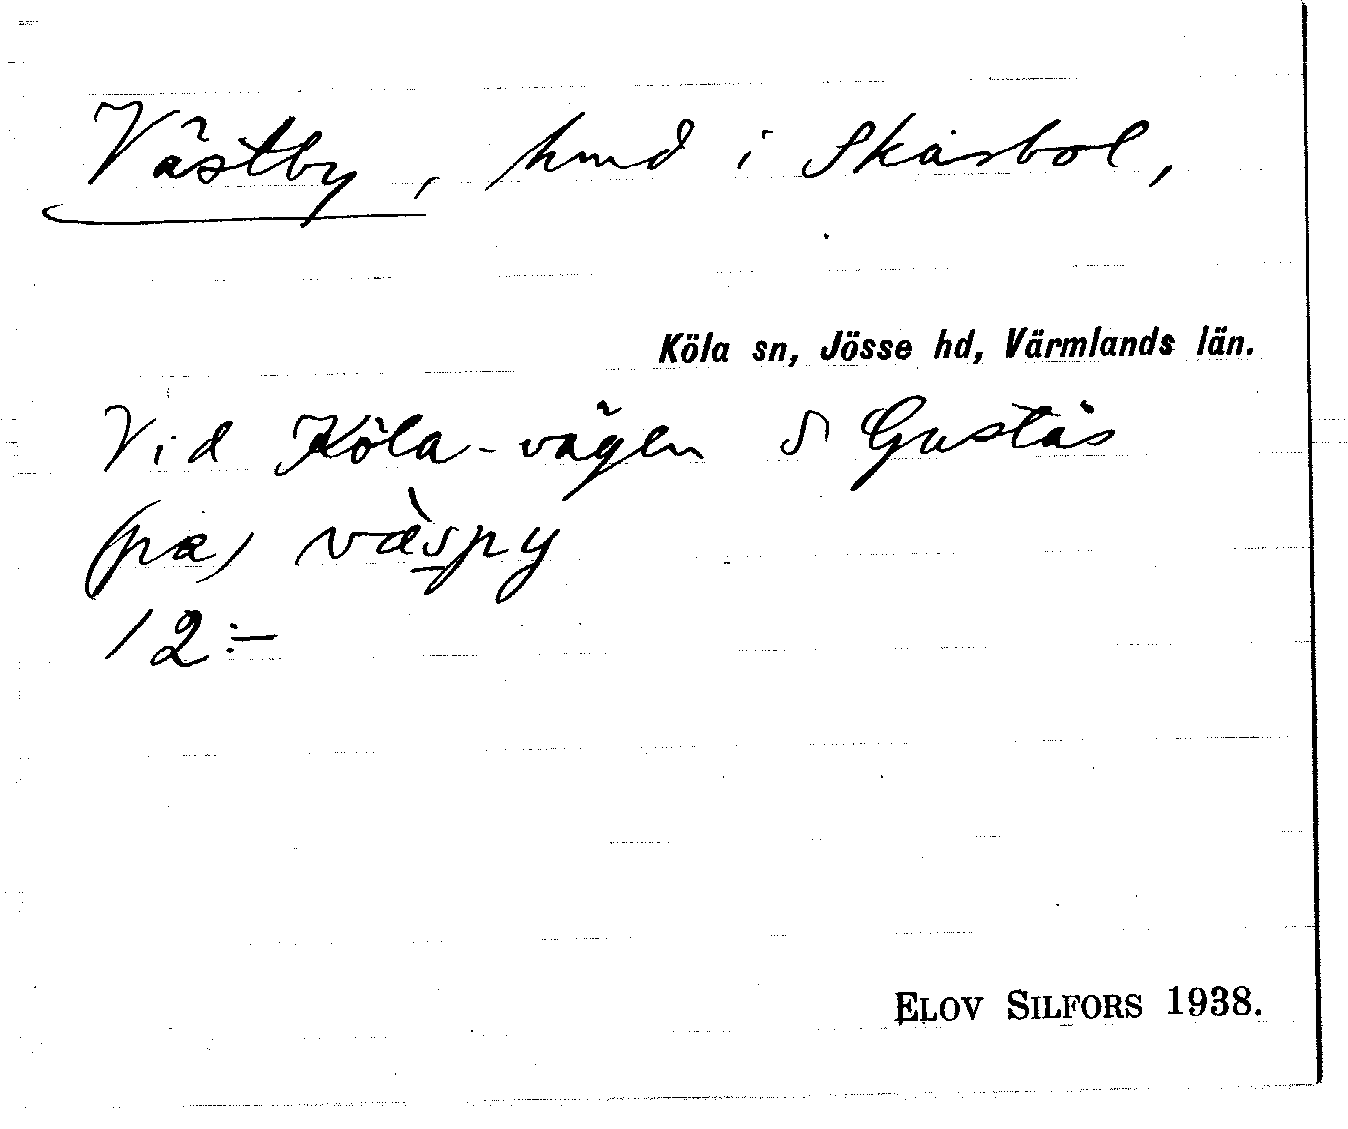 Västby, hmd i Skarbol,
Köla sn, Jösse hd, Värmlands län.
Vid Köla-vägen S Gustås
(pæ) væ̀spy
12:-
ELOV SILFORS 1938.